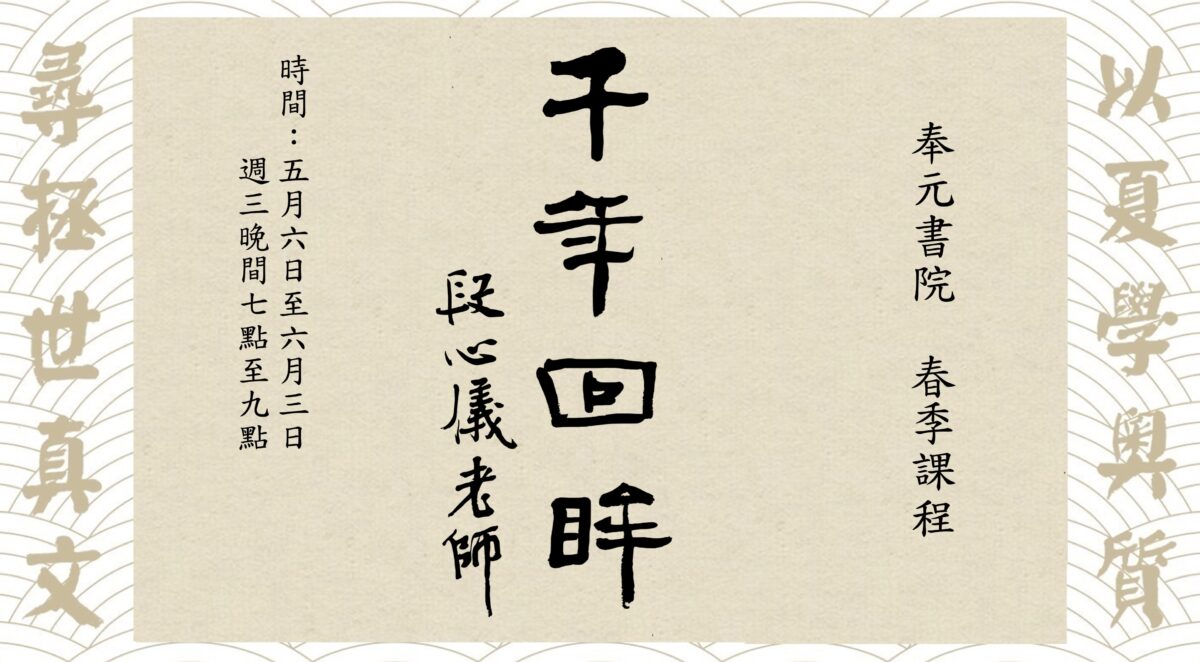 以夏學奧質
奉元書院 春季課程
千年回眸
段心儀老師
時間：五月六日至六月三日
週三晚間七點至九點
尋拯世真文